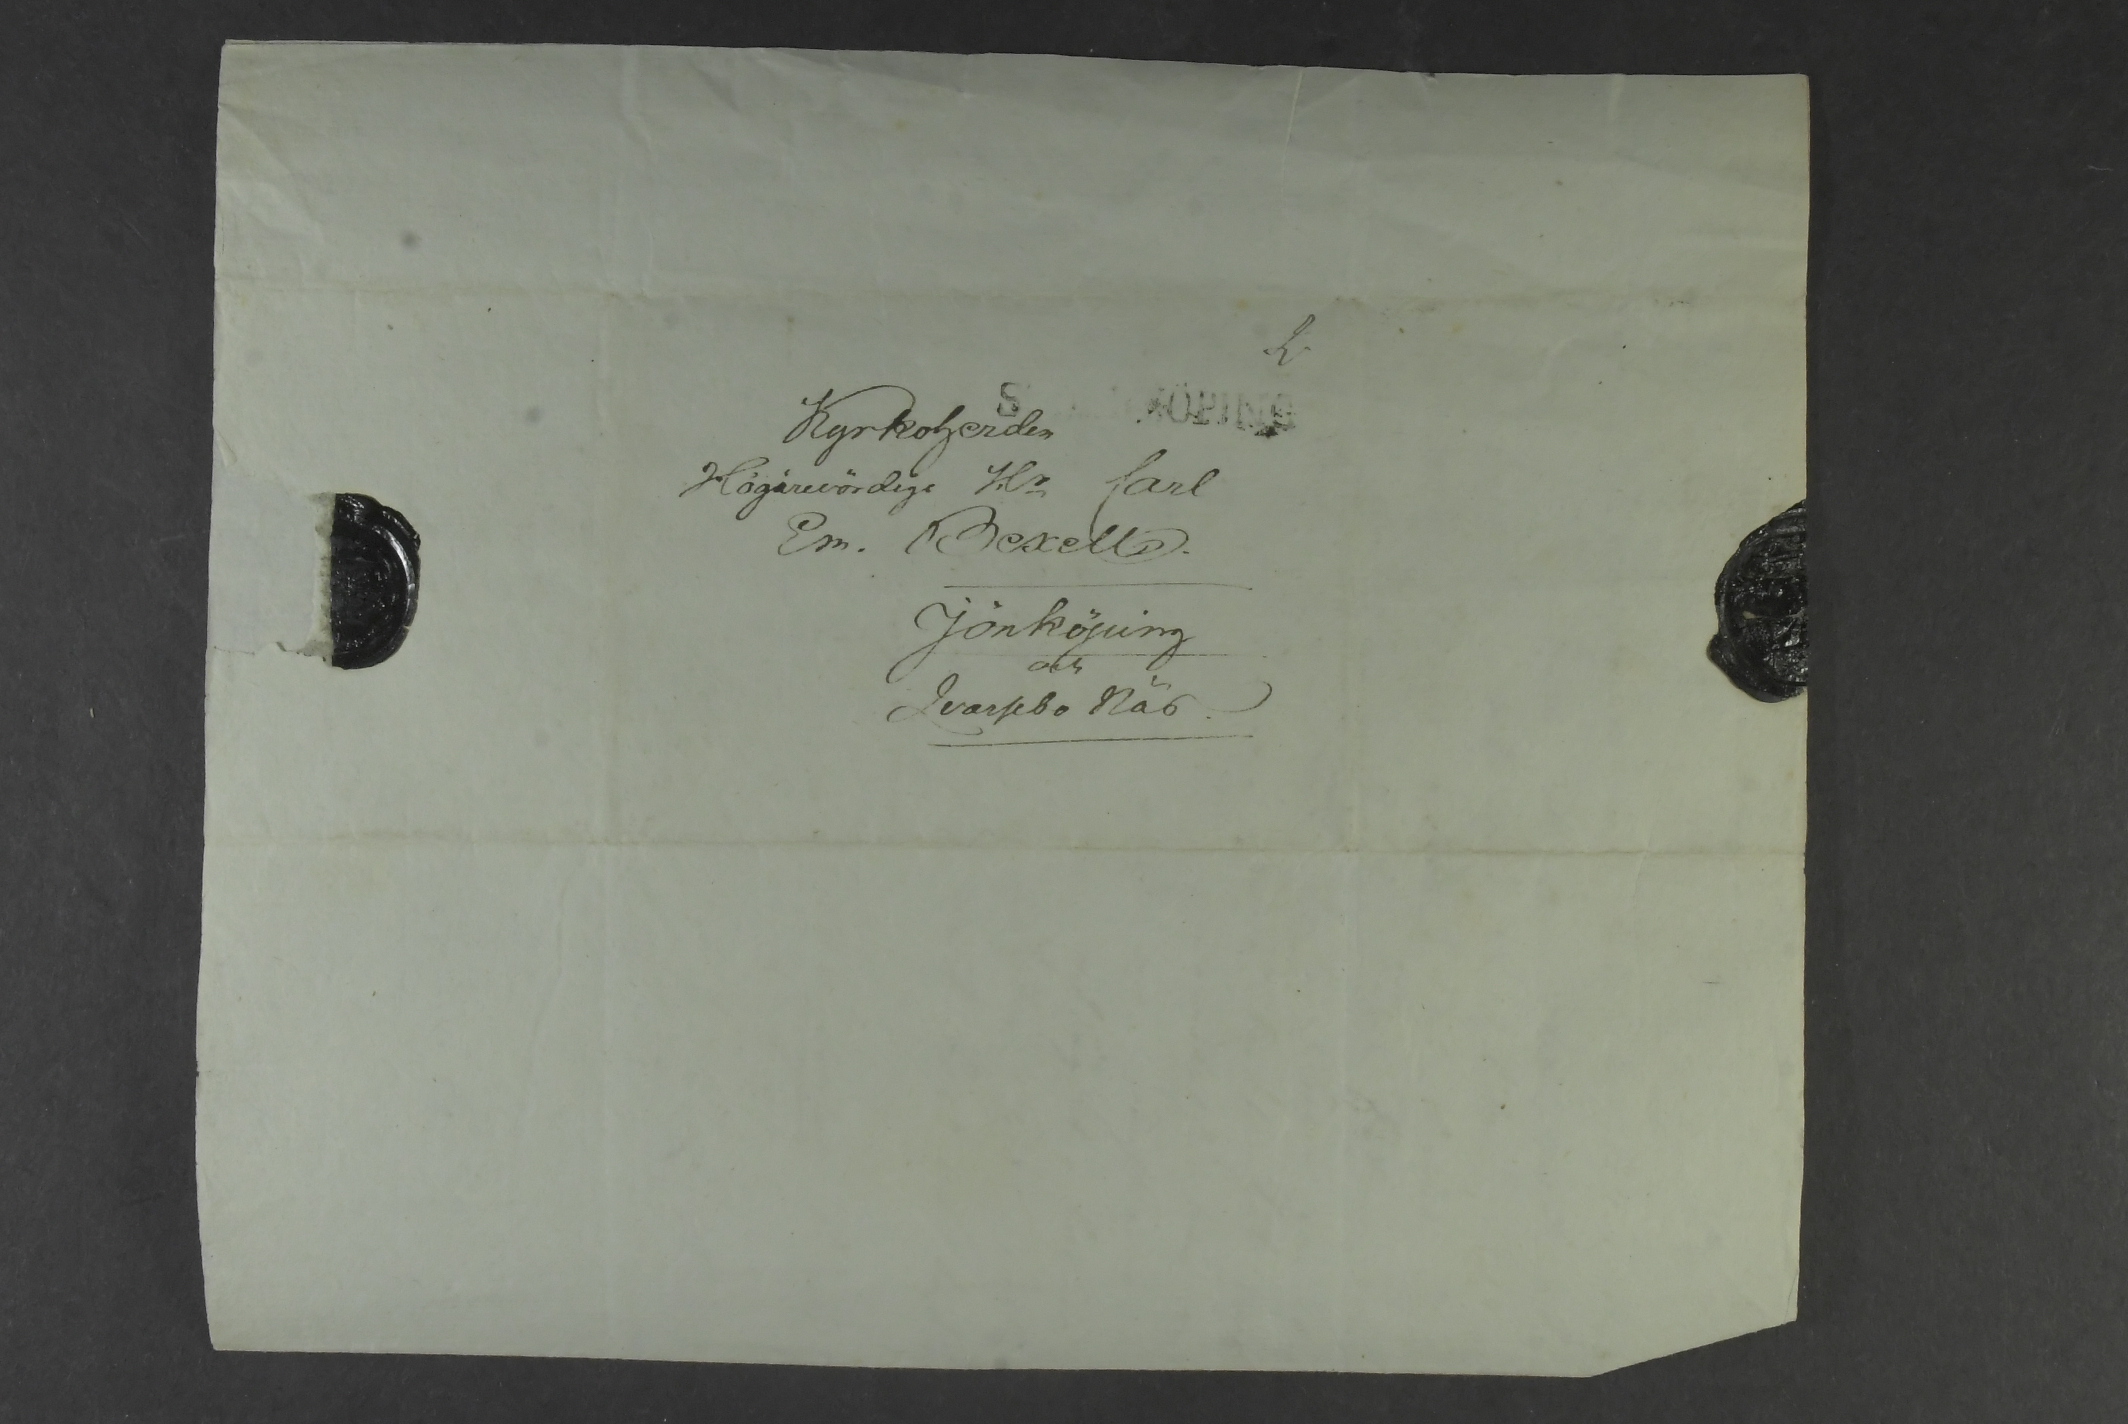 S KÖPING
Kyrkoherden
Högärevördige Hr Carl
Em. Bexell
Jönköping
och
Qvarsebo Näs.